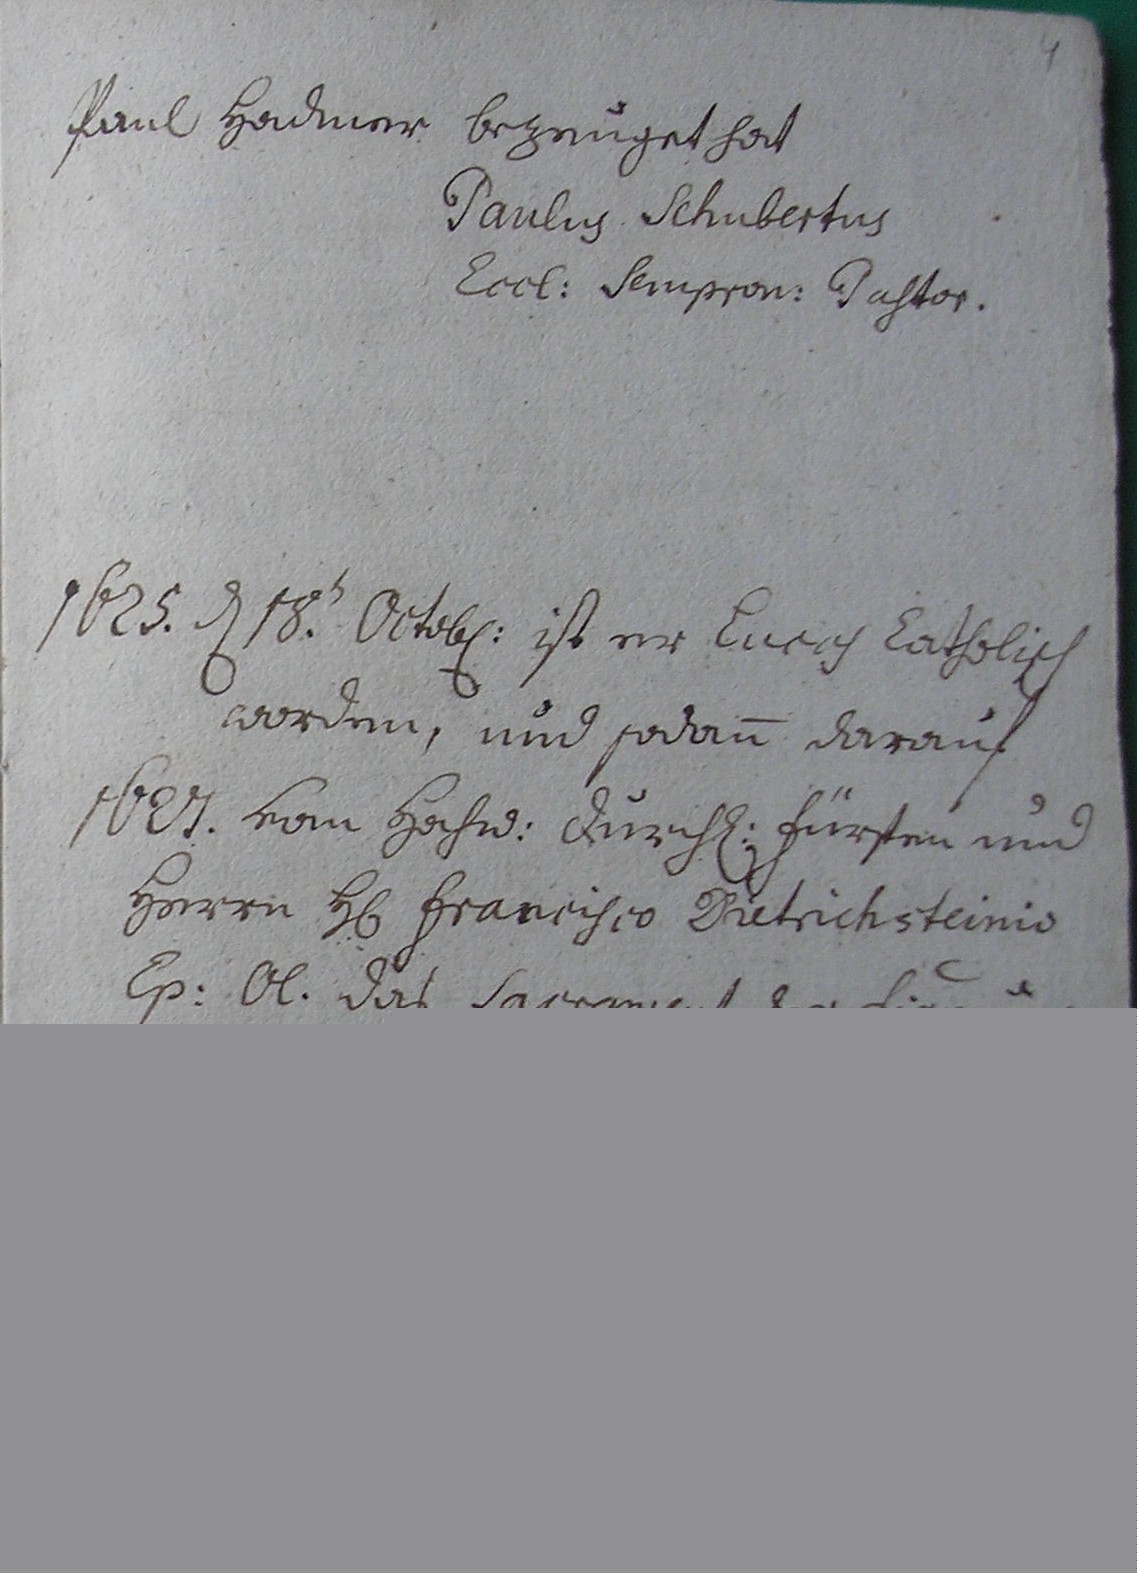 4
Paul Hadmer bezeuget hat
Paulus Schubertus
Eccl: Sempron: Pastor.
1625. d 18.t Octob: ist er Lucas Catholisch
worden, und sodan̄ darauf
1627. vom Hochw: Durchl: Fürsten und
Herrn H Francisco Dietrichsteinio
Ep: Ol. das Sacrament der